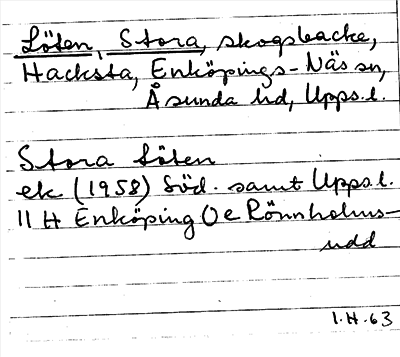 Löten, Stora, skogsbacke,
Hacksta, Enköpings-Näs sn,
Åsunda hd, Upps.l.
Stora Löten
ek (1958) Söd. samt Upps.l.
11 H Enköping O e Rönnholms-
udd
1.H.63